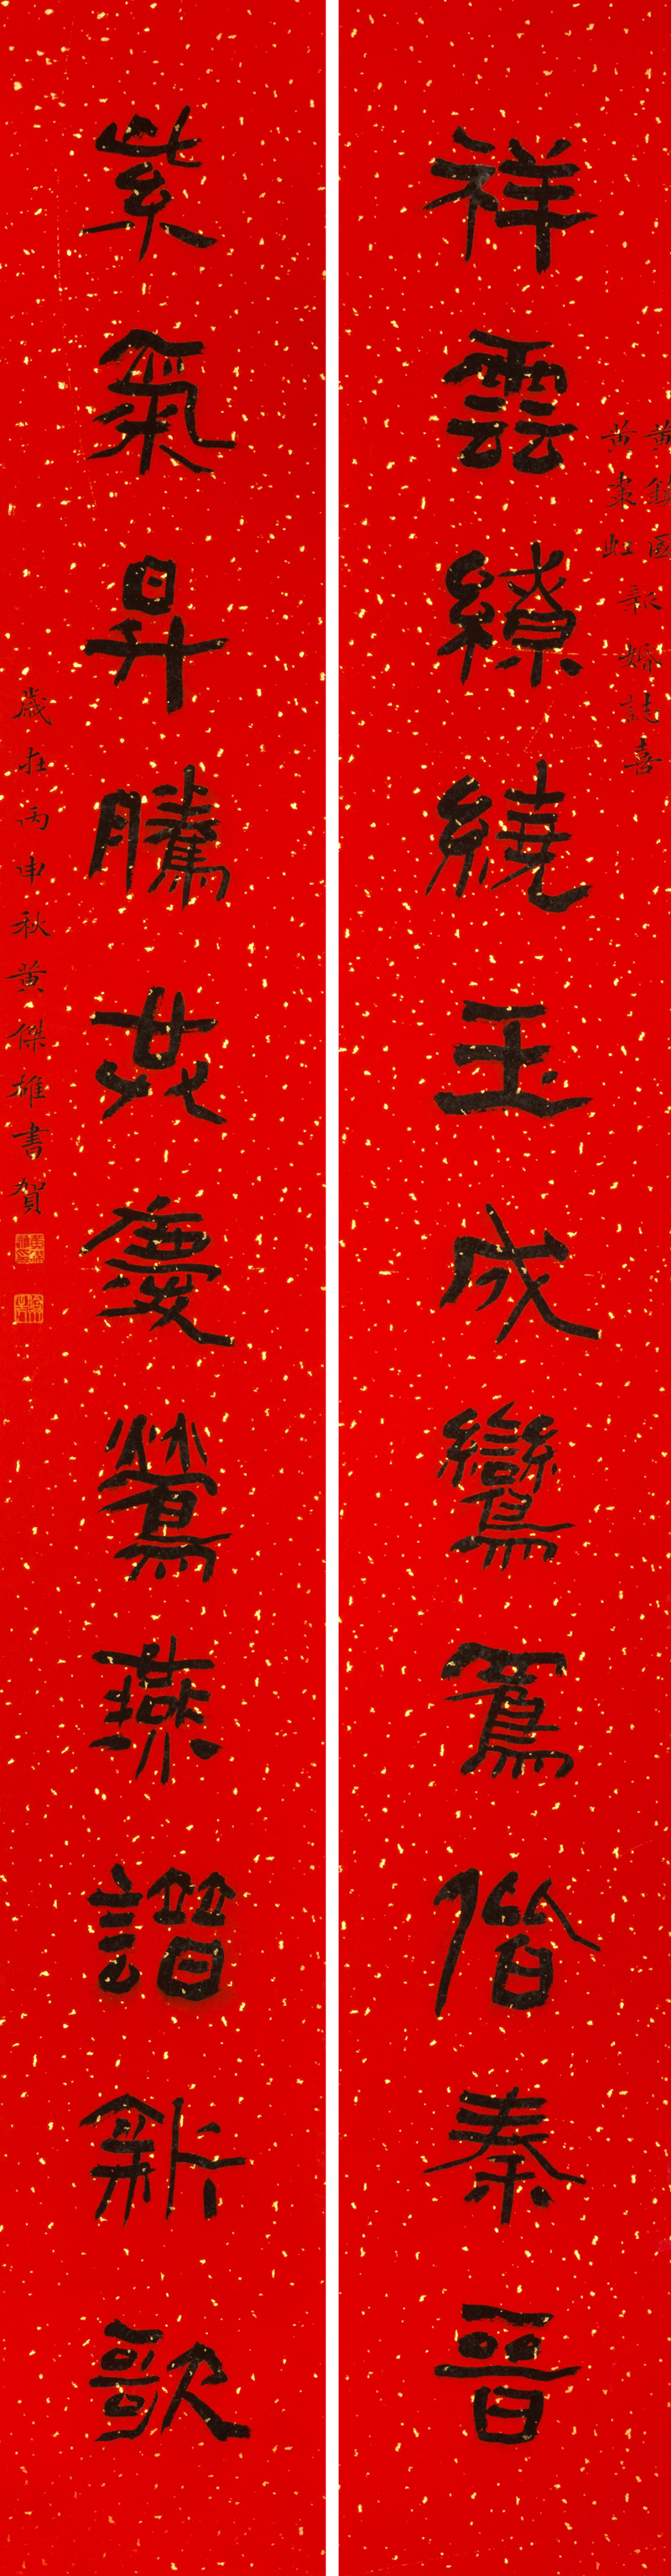 黄鎮國
黄虹
新婚誌喜
祥雲繚繞玉成鸞鴛偕秦晉
紫氣昇騰共慶鶯燕譜新歌
歲在丙申秋黄傑雄書賀